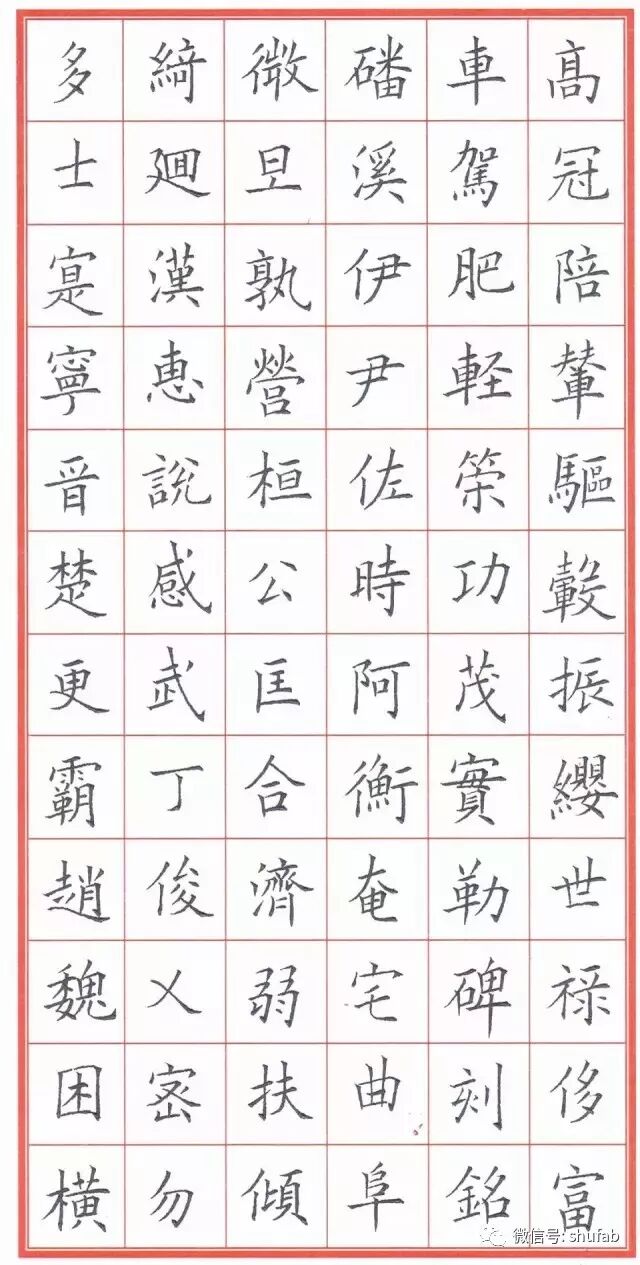 高冠陪輦驅轂振纓世禄侈富
車駕肥軽策功茂實勒碑刻銘
磻溪伊尹佐時阿衡奄宅曲阜
微旦孰營桓公匡合濟弱扶傾
綺廻漢惠說感武丁俊乂密勿
多士寔寧晉楚更霸趙魏困橫
微信号: shufab